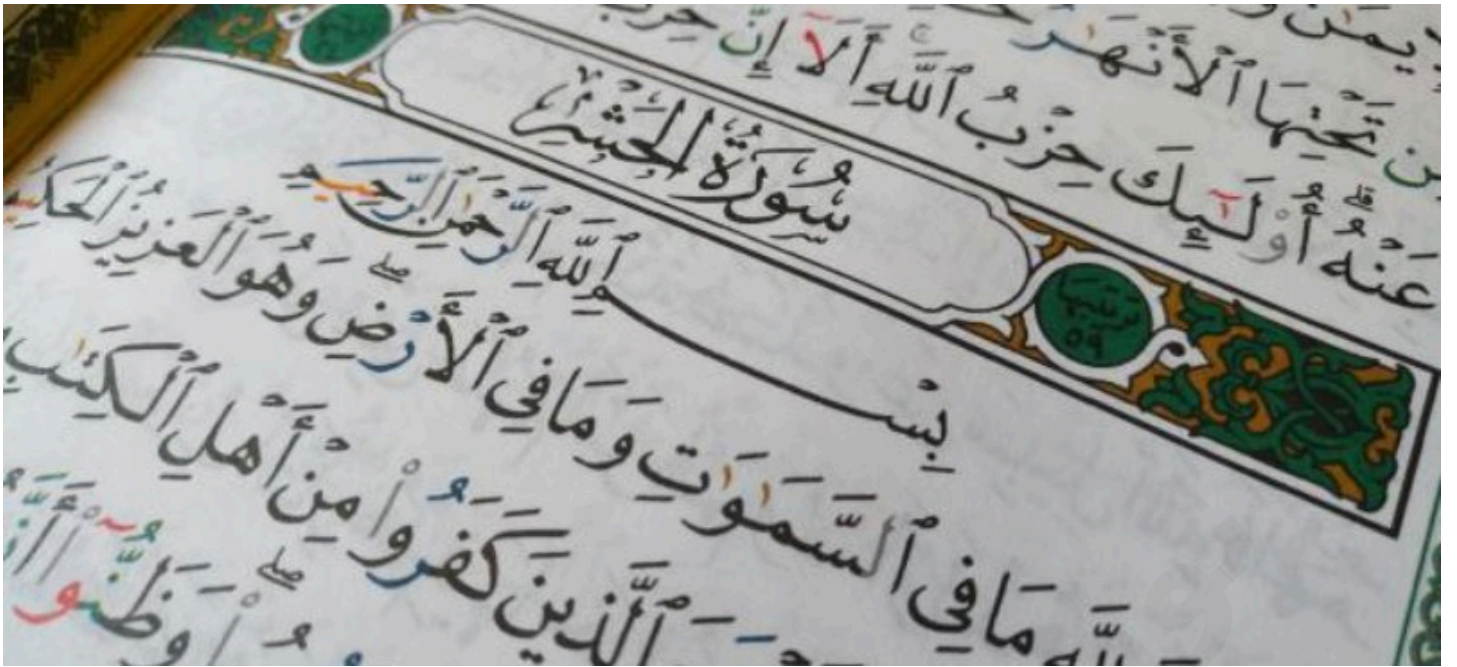 مِن تَحْتِهَا ٱلْأَنْهَٰرُ
عَنْهُ ۗ أُو۟لَٰٓئِكَ حِزْبُ ٱللَّهِ ۚ أَلَآ إِنَّ حِزْبَ
سُورَةُ الحَشْرِ
ترتيبها ٥٩
بِسْمِ ٱللَّهِ ٱلرَّحْمَٰنِ ٱلرَّحِيمِ
لِلَّهِ مَا فِي ٱلسَّمَٰوَٰتِ وَمَا فِي ٱلْأَرْضِ ۖ وَهُوَ ٱلْعَزِيزُ ٱلْحَكِيمُ
ٱلَّذِينَ كَفَرُوا۟ مِنْ أَهْلِ ٱلْكِتَٰبِ
وَظَنُّوٓا۟